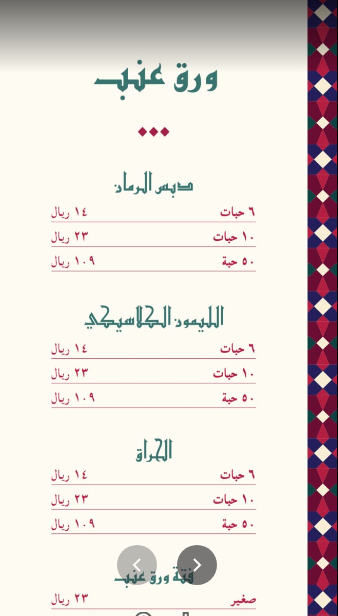 ورق عنب
دبس الرمان
٦ حبات ١٤ ريال
١٠ حبات ٢٣ ريال
٥٠ حبة ١٠٩ ريال
الليمون الكلاسيكي
٦ حبات ١٤ ريال
١٠ حبات ٢٣ ريال
٥٠ حبة ١٠٩ ريال
الحراق
٦ حبات ١٤ ريال
١٠ حبات ٢٣ ريال
٥٠ حبة ١٠٩ ريال
فتة ورق عنب
صغير ٢٣ ريال